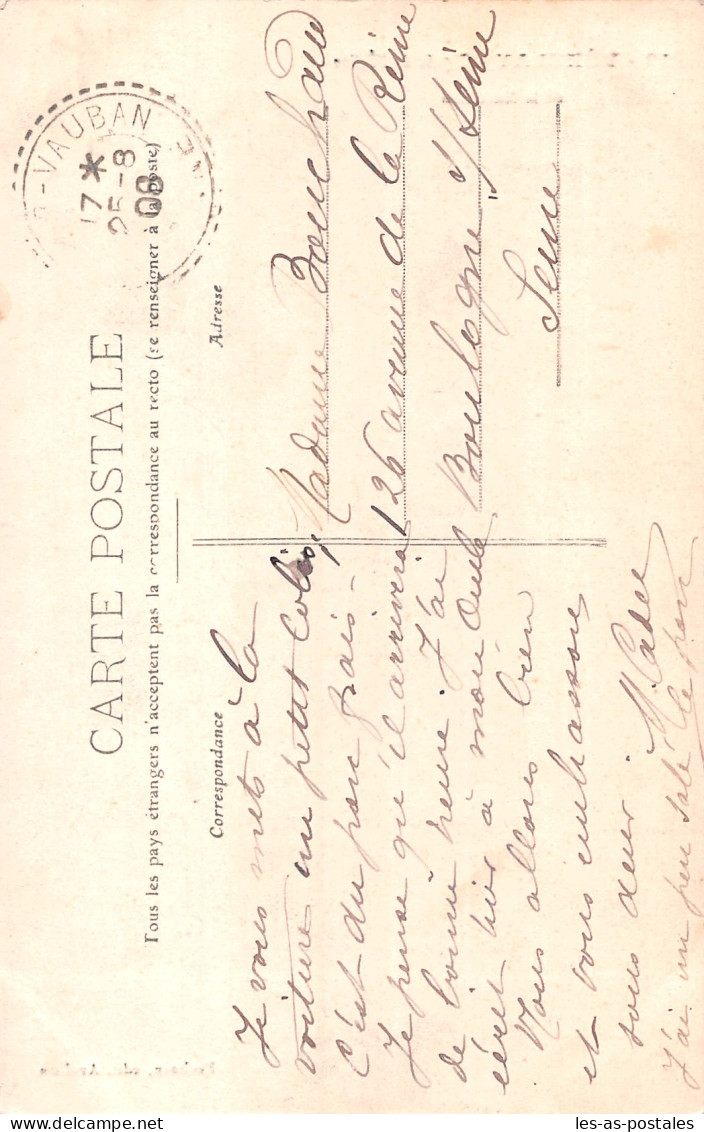 -VAUBAN
17 *
25-8
08
CARTE POSTALE
Tous les pays étrangers n'acceptent pas la correspondance au recto (se renseigner à la poste)
Correspondance
Je vous mets à la
voiture un petit colis,
c'est du porc frais -
Je pense qu'il arrivera
de bonne heure. J'ai
écrit hier à mon Oncle
Nous allons bien
et vous embrassons
tous deux
J'ai un peu salé le porc
Adresse
Madame Bouchard
126 avenue de la Reine
Boulogne s/ Seine
Seine
les-as-postales